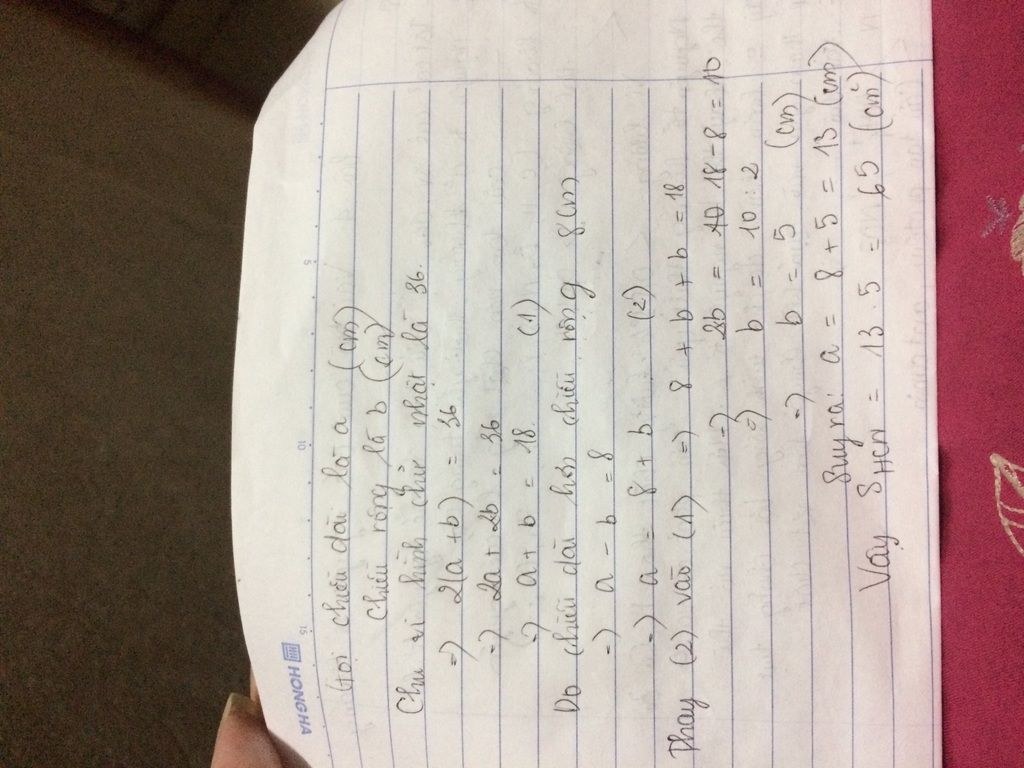 HONGHA
5
10
15
Gọi chiều dài là a (cm)
chiều rộng là b (cm)
Chu vi hình chữ nhật là 36.
=> 2(a+b) = 36
=> 2a + 2b = 36
=> a + b = 18 (1)
Do chiều dài hơn chiều rộng 8cm
=> a - b = 8
=> a = 8 + b (2)
Thay (2) vào (1) => 8 + b + b = 18
=> 2b = 18 - 8 = 10
=> b = 10 : 2
=> b = 5 (cm)
Suy ra: a = 8 + 5 = 13 (cm)
Vậy S HCN = 13 . 5 = 65 (cm²)